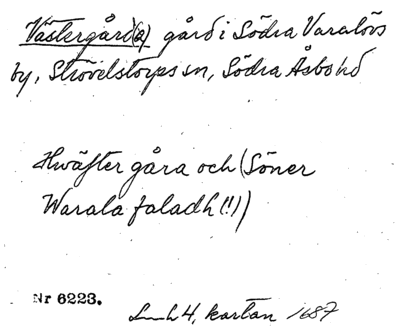 Västergård(a) gård i Södra Varalövs
by, Strövelstorps sn, Södra Åsbo hd
Hwäfter gåra och (Söner
Warala faladh (!))
Nr 6223.
h 4, kartan 1687